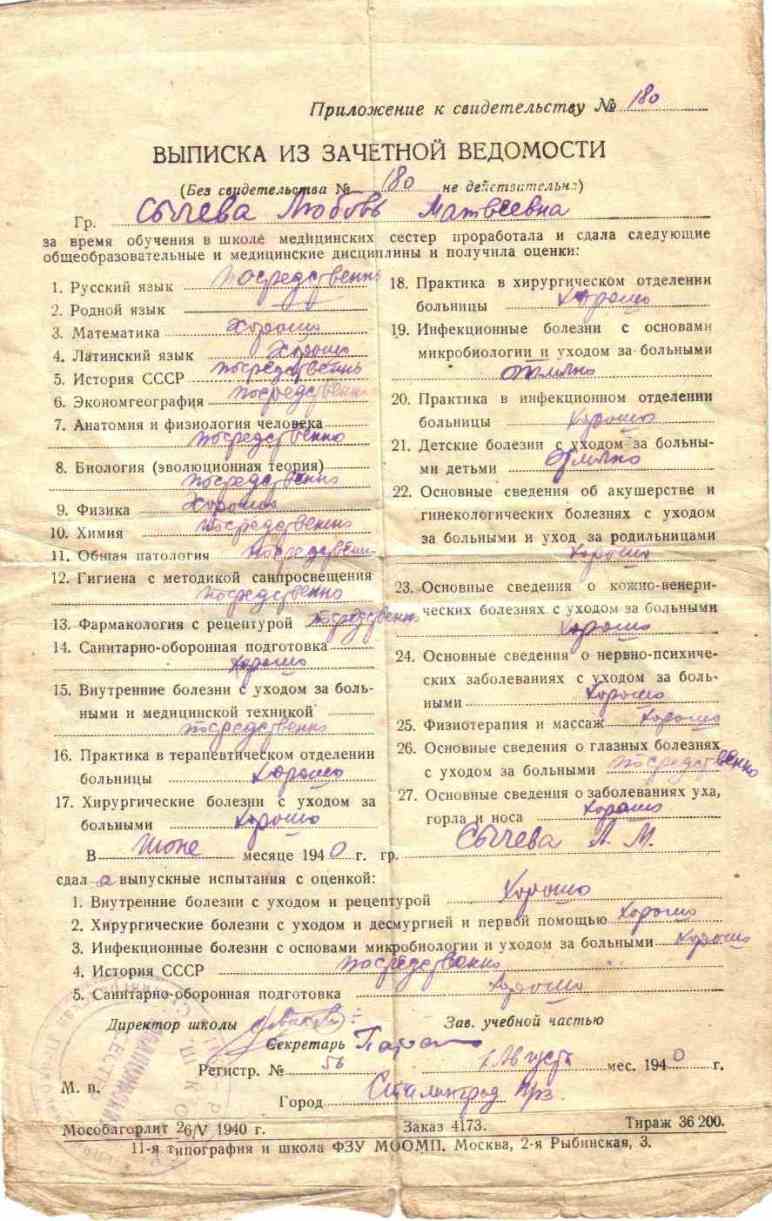 Приложение к свидетельству № 180
ВЫПИСКА ИЗ ЗАЧЕТНОЙ ВЕДОМОСТИ
(Без свидетельства № 180 не действительна)
Гр. Сычева Любовь Матвеевна
за время обучения в школе медицинских сестер проработала и сдала следующие
общеобразовательные и медицинские дисциплины и получила оценки:
1. Русский язык посредственно
2. Родной язык —
3. Математика хорошо
4. Латинский язык хорошо
5. История СССР посредственно
6. Экономгеография посредственно
7. Анатомия и физиология человека
посредственно
8. Биология (эволюционная теория)
посредственно
9. Физика хорошо
10. Химия посредственно
11. Общая патология посредственно
12. Гигиена с методикой санпросвещения
посредственно
13. Фармакология с рецептурой посредственно
14. Санитарно-оборонная подготовка
хорошо
15. Внутренние болезни с уходом за боль-
ными и медицинской техникой
посредственно
16. Практика в терапевтическом отделении
больницы хорошо
17. Хирургические болезни с уходом за
больными хорошо
18. Практика в хирургическом отделении
больницы хорошо
19. Инфекционные болезни с основами
микробиологии и уходом за больными
отлично
20. Практика в инфекционном отделении
больницы хорошо
21. Детские болезни с уходом за больны-
ми детьми отлично
22. Основные сведения об акушерстве и
гинекологических болезнях с уходом
за больными и уход за родильницами
хорошо
23. Основные сведения о кожно-венери-
ческих болезнях с уходом за больными
хорошо
24. Основные сведения о нервно-психиче-
ских заболеваниях с уходом за боль-
ными хорошо
25. Физиотерапия и массаж хорошо
26. Основные сведения о глазных болезнях
с уходом за больными посредственно
27. Основные сведения о заболеваниях уха,
горла и носа хорошо
В июне месяце 1940 г. гр. Сычева Л. М.
сдала выпускные испытания с оценкой:
1. Внутренние болезни с уходом и рецептурой хорошо
2. Хирургические болезни с уходом и десмургией и первой помощью хорошо
3. Инфекционные болезни с основами микробиологии и уходом за больными хорошо
4. История СССР посредственно
5. Санитарно-оборонная подготовка хорошо
Директор школы Зав. учебной частью
Секретарь
Регистр. № 56 1 Август мес. 1940 г.
М. п.
Город Сталингород
Мособлгорлит 26/V 1940 г. Заказ 4173. Тираж 36 200.
11-я типография и школа ФЗУ МООМП. Москва, 2-я Рыбинская, 3.